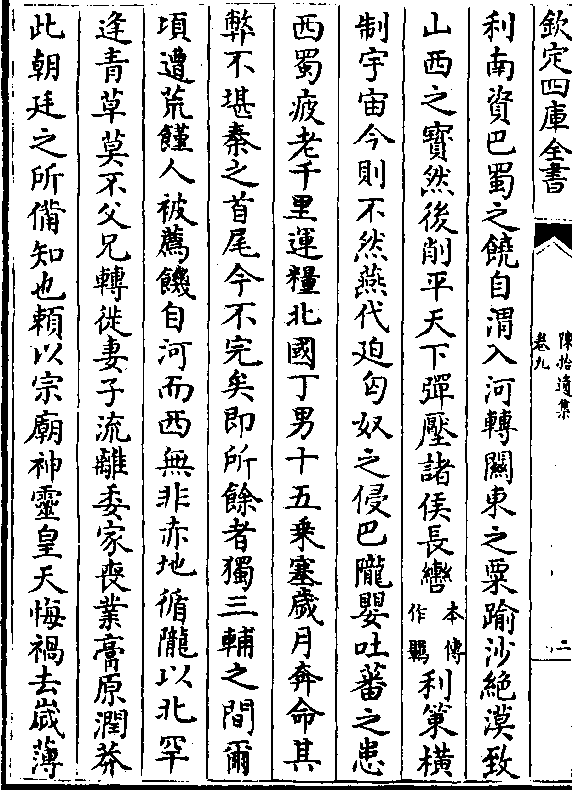 欽定四庫全書
陳拾遺集
卷九
二
利南資巴蜀之饒自渭入河轉關東之粟踰沙絶漠致
山西之寳然後削平天下彈壓諸侯長轡本傳作羈利䇿橫
制宇宙今則不然燕代廹匈奴之侵巴隴嬰吐蕃之患
西蜀疲老千里運糧北國丁男十五乘塞歲月奔命其
弊不堪秦之首尾今不完矣即所餘者獨三輔之間爾
頃遭荒饉人被薦饑自河而西無非赤地循隴以北罕
逢青草莫不父兄轉徙妻子流離委家喪業膏原潤莽
此朝廷之所備知也賴以宗廟神靈皇天悔禍去歲薄